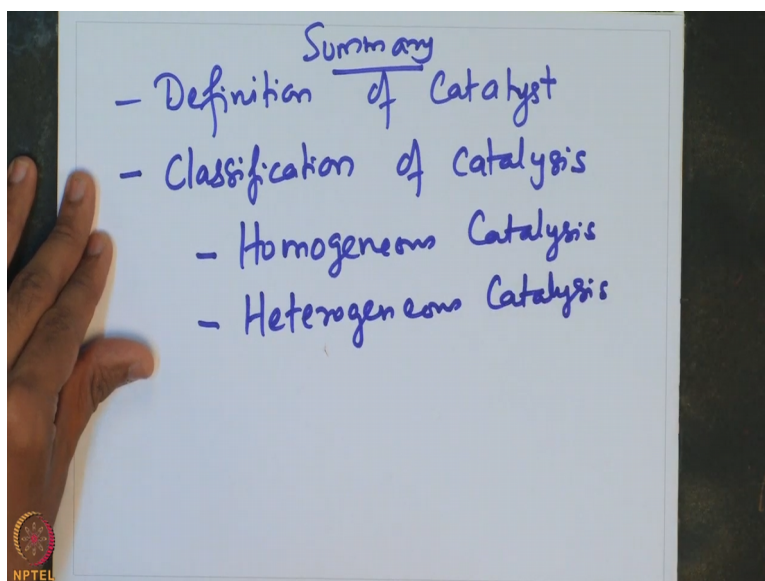 Summary
- Definition of Catalyst
- Classification of Catalysis
- Homogeneous Catalysis
- Heterogeneous Catalysis
NPTEL